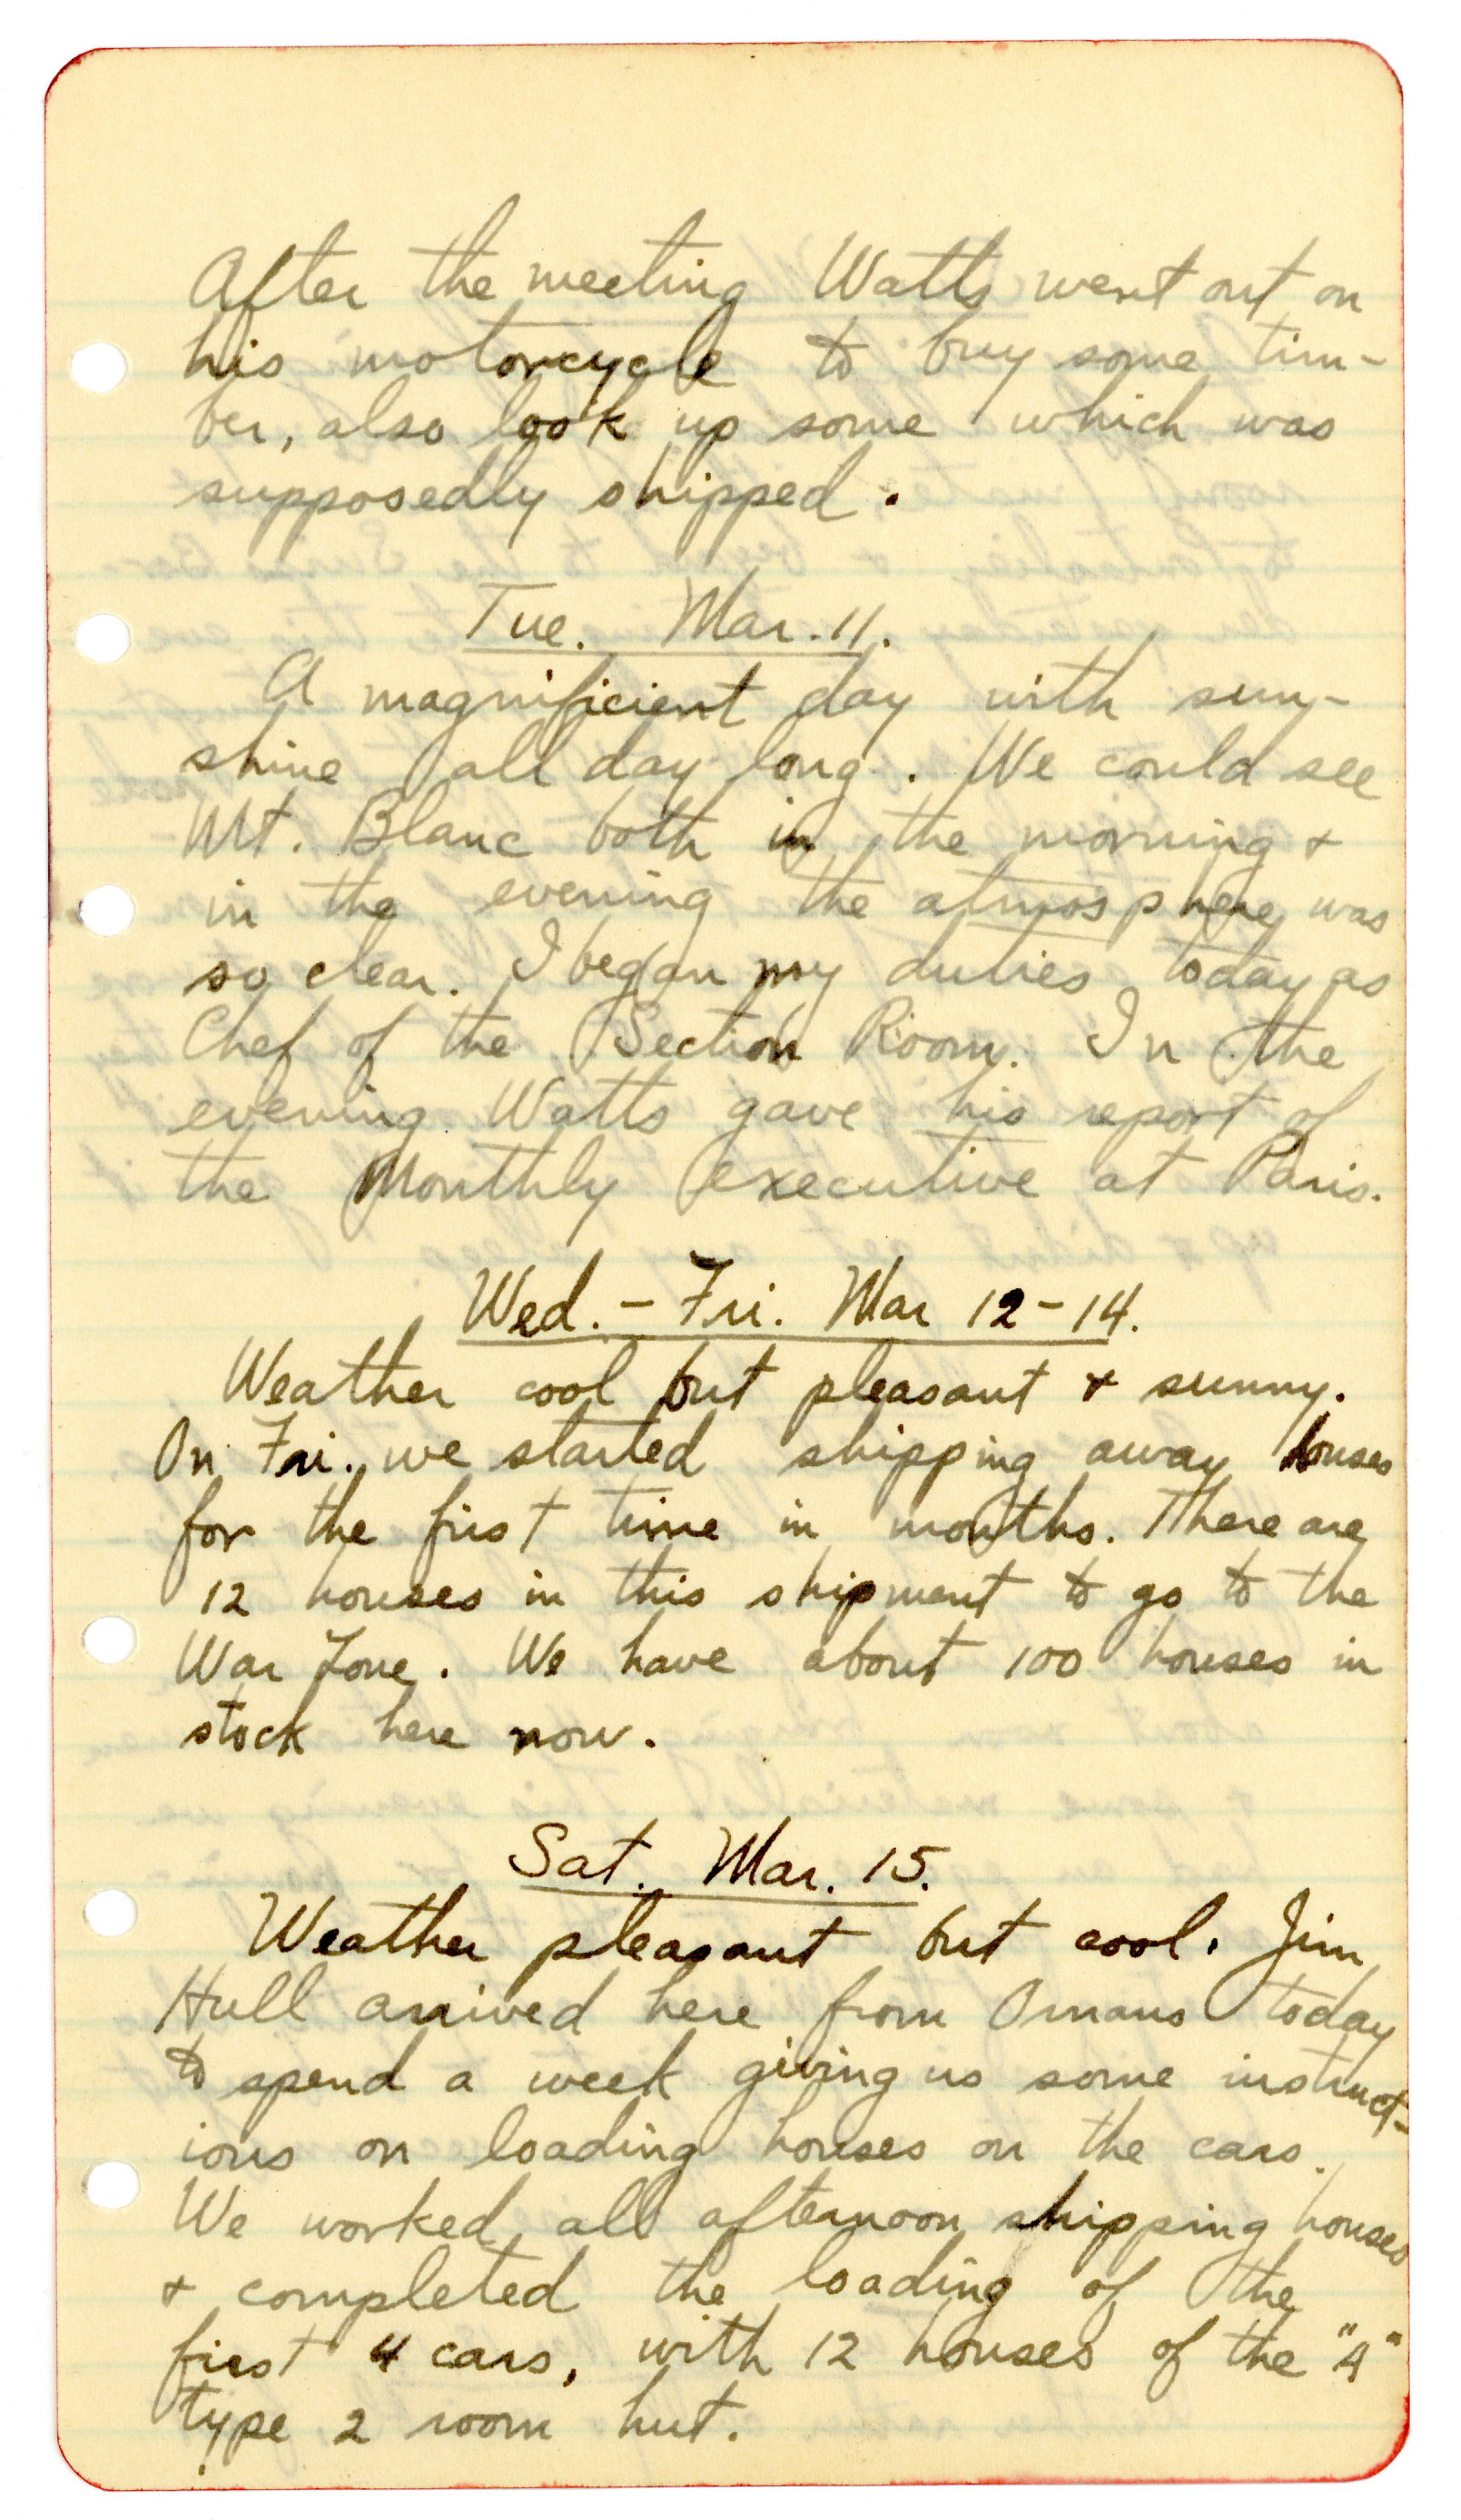 After the meeting Watts went out on
his motorcycle to buy some tim-
ber, also look up some which was
supposedly shipped.
Tue. Mar. 11.
A magnificient day with sun-
shine all day long. We could see
Mt. Blanc both in the morning &
in the evening the atmosphere was
so clear. I began my duties today as
Chef of the Section Room. In the
evening Watts gave his report of
the Monthly executive at Paris.
Wed. - Fri. Mar 12-14.
Weather cool but pleasant & sunny.
On Fri. we started shipping away houses
for the first time in months. There are
12 houses in this shipment to go to the
War Zone. We have about 100 houses in
stock here now.
Sat. Mar. 15.
Weather pleasant but cool. Jim
Hull arrived here from Ornans today
to spend a week giving us some instruct-
ions on loading houses on the cars.
We worked all afternoon shipping houses
& completed the loading of the
first 4 cars, with 12 houses of the "4"
type 2 room hut.